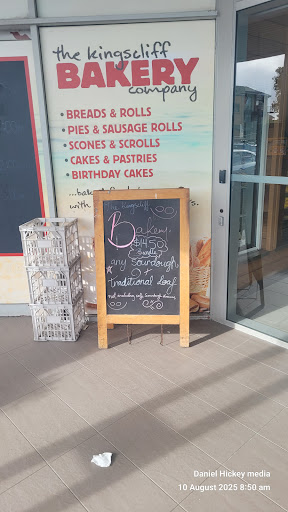 the kingscliff
BAKERY
company
• BREADS & ROLLS
• PIES & SAUSAGE ROLLS
• SCONES & SCROLLS
• CAKES & PASTRIES
• BIRTHDAY CAKES
with
The Kingscliff
Bakery
$14.50
any Sourdough
+
traditional Loaf
not including
Daniel Hickey media
10 August 2025 8:50 am